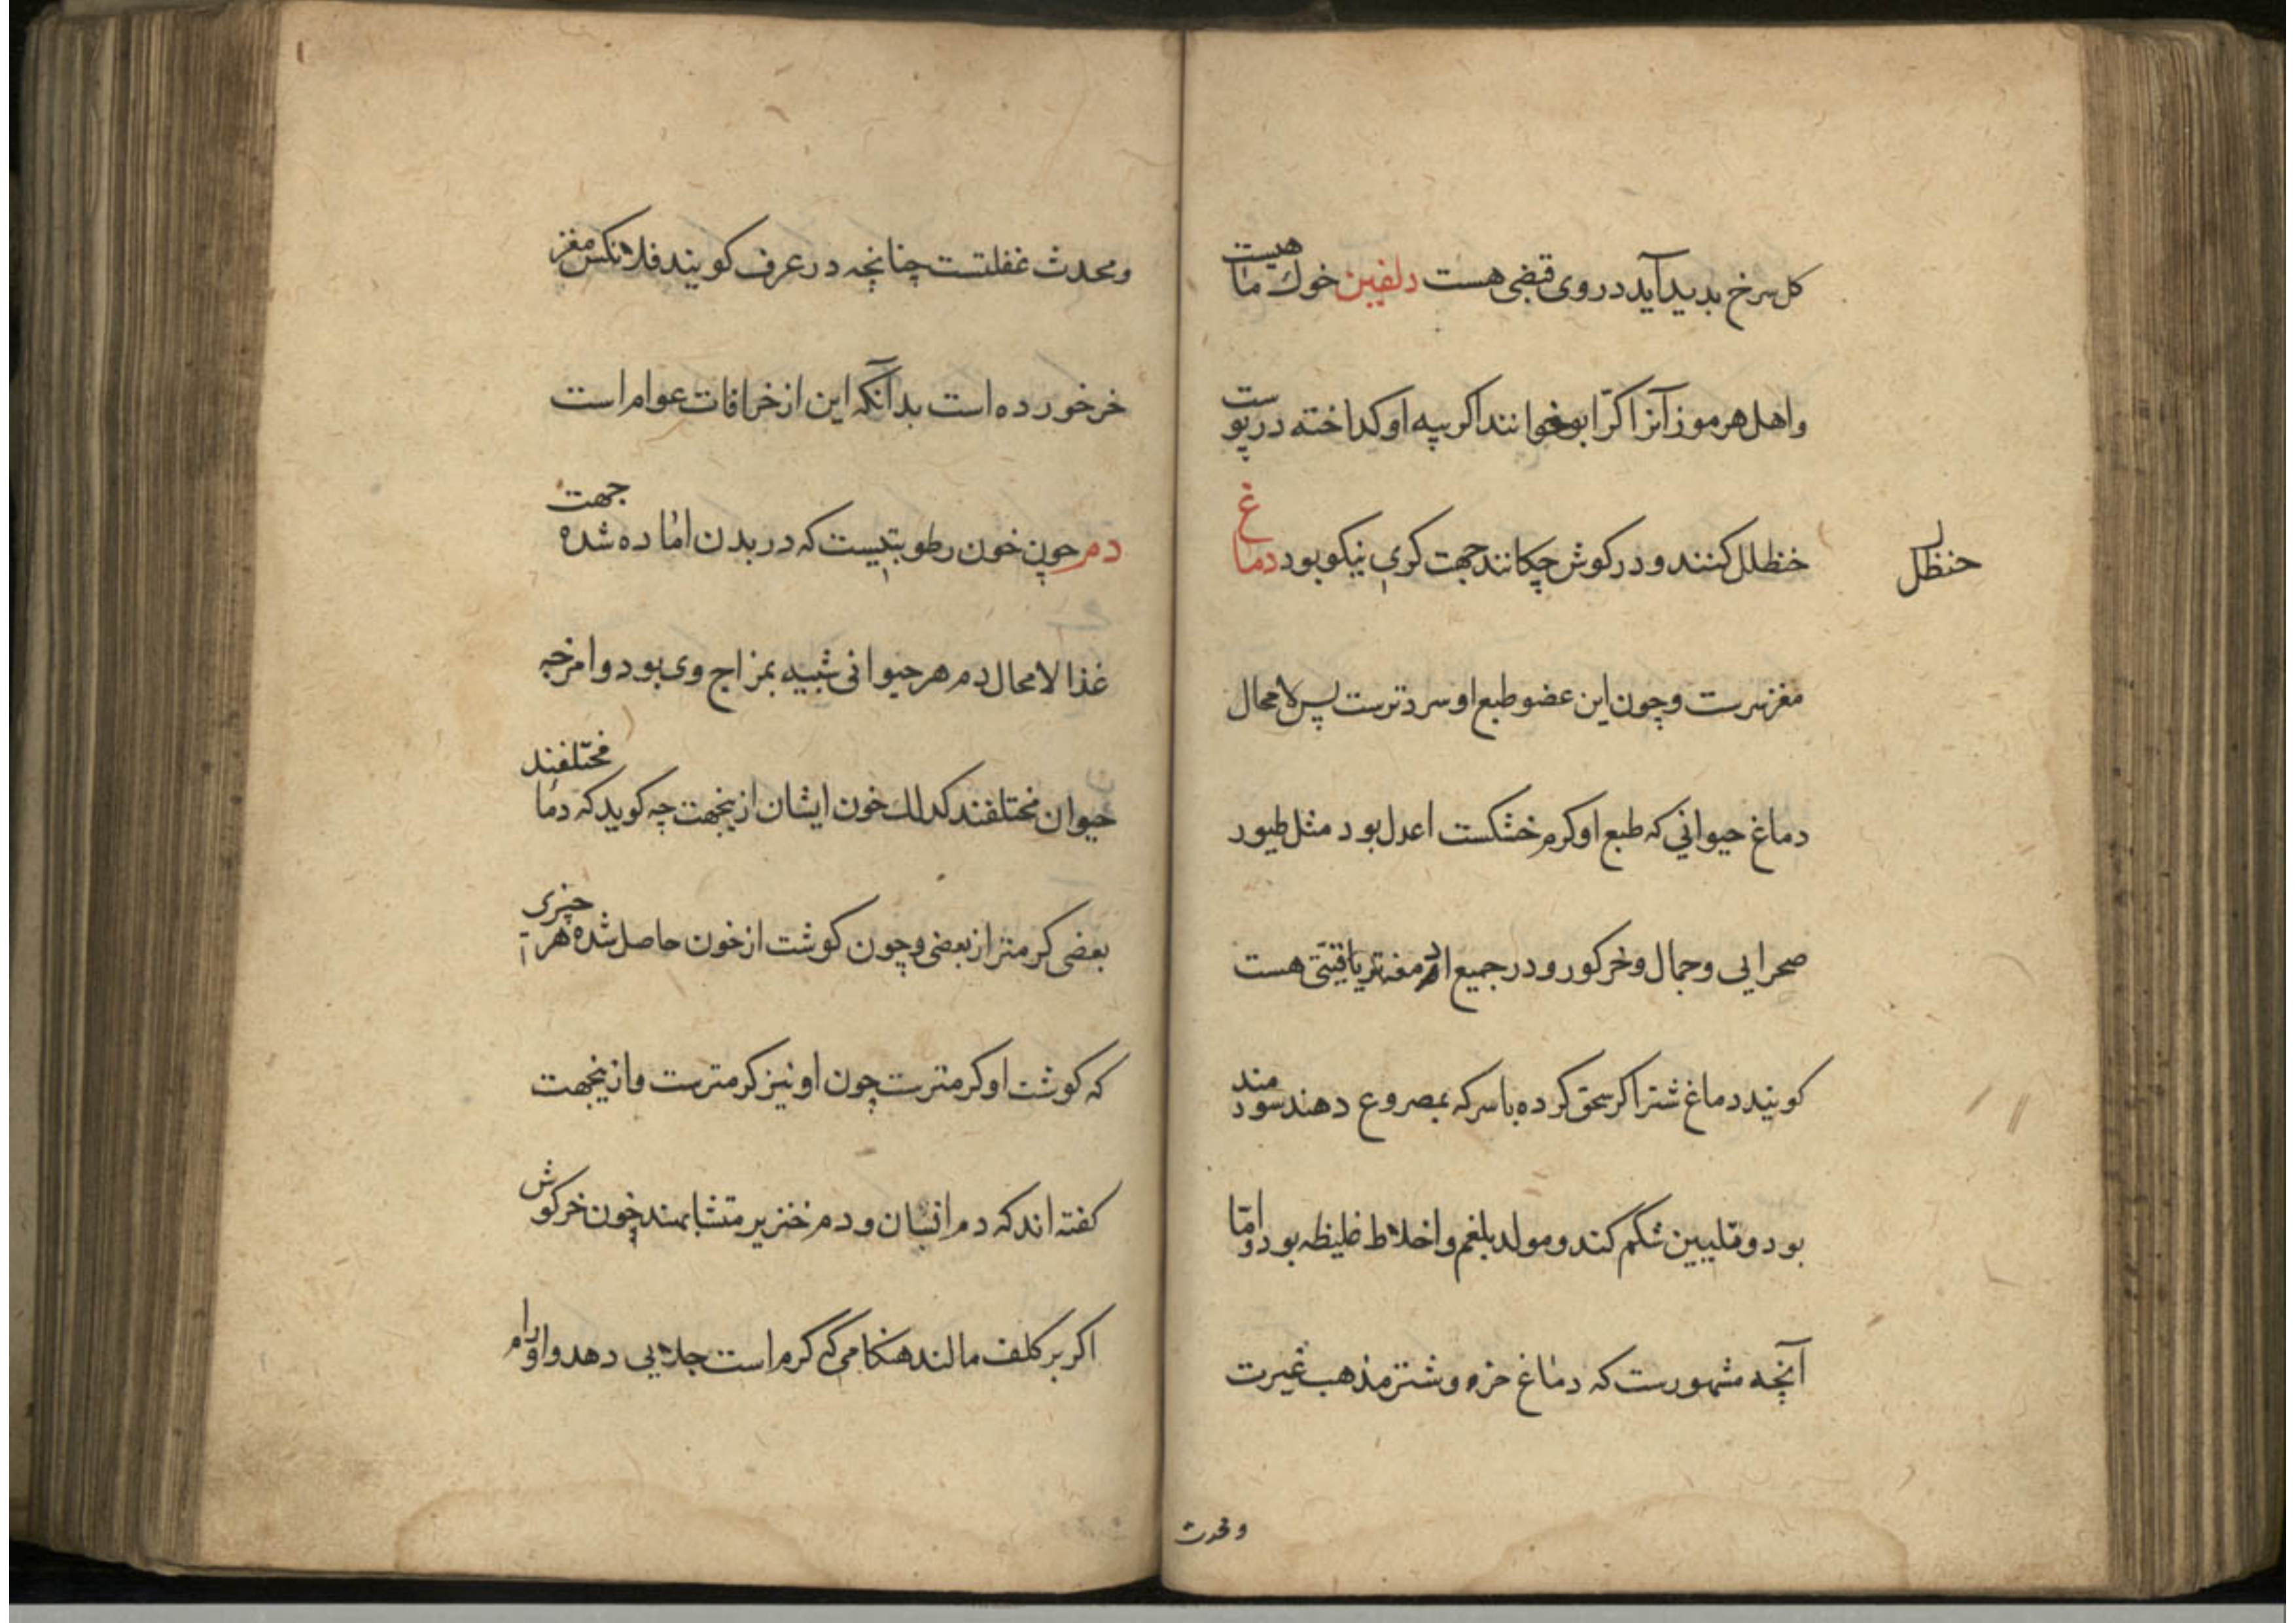 کل سرخ بدید آید در وی قبضی هست دلفین خوك ما هیست
واهل هرموز آنرا کرّا بو خوانند اکر پیه او کداخته در پوست
خظلل کنند و در کوش چکانند جهت کری نیکو بود دماغ
حنظل
مغز سرست و چون این عضو طبع او سرد ترست پس لامحال
دماغ حیوانی که طبع او کرم خشکست اعدل بود مثل طیور
صحرایی و جمال و خر کور و در جمیع تریاقیّتی هست
کویند دماغ شتر اکر سحق کرده با سرکه بمصروع دهند سودمند
بود و تلیین شکم کند و مولد بلغم و اخلاط غلیظه بود و امّا
آنچه مشهورست که دماغ خر و شتر مذهب غیرت
و محدث
و محدث غفلتست چنانچه در عرف کویند فلانکس مغز
خر خورده است بدآنکه این از خرافات عوام است
دم چون خون رطوبتیست که در بدن اماده شده جهت
غذا لامحال دم هر حیوانی شبیه بمزاج وی بود و امزجه
حیوان مختلفند کذلك خون ایشان ازینجهت چه کوید که دما مختلفند
بعضی کرمتر از بعضی و چون کوشت از خون حاصل شده هر آ چیزی
که کوشت او کرمترست چون او نیز کرمترست و ازینجهت
کفته اند که دم انسان و دم خنزیر متشابهند چون خرکوش
اکر بر کلف مالند هنکامی که کرم است جلایی دهد و اورام